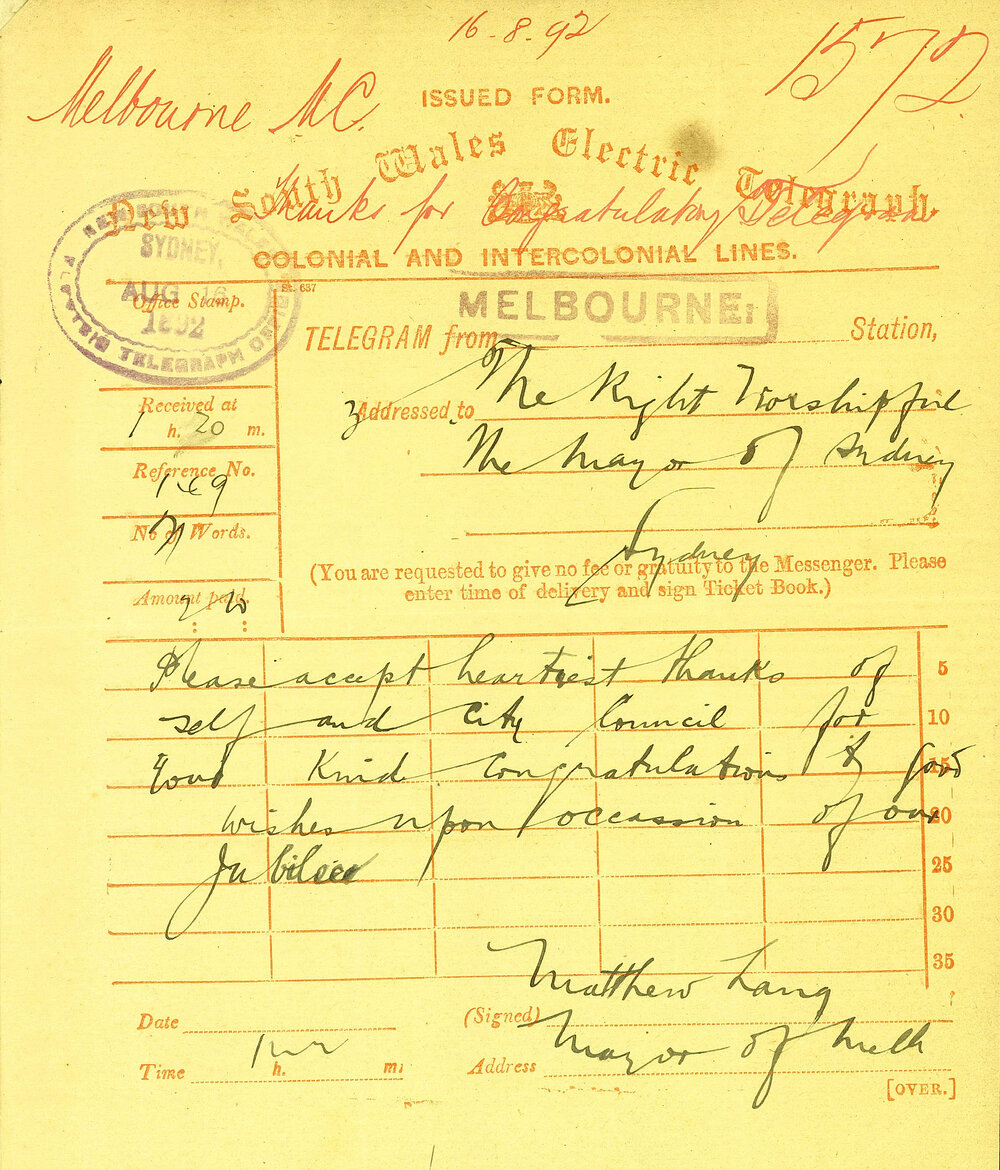 16-8-92
Melbourne M.C. 1572
ISSUED FORM.
New South Wales Electric Telegraph.
Thanks for Congratulatory Telegram
COLONIAL AND INTERCOLONIAL LINES.
NEW SOUTH WALES
SYDNEY,
AUG 16
1892
ELECTRIC TELEGRAPH OFFICE
Office Stamp.
St. 637
MELBOURNE
TELEGRAM from Station,
Addressed to The Right Worshipful
The Mayor of Sydney
Sydney
Received at
1 h. 20 m.
Reference No.
No of Words.
Amount paid.
(You are requested to give no fee or gratuity to the Messenger. Please
enter time of delivery and sign Ticket Book.)
Please accept heartiest thanks of 5
self and City Council for 10
your kind congratulations & good 15
wishes upon occassion of our 20
Jubilee 25
30
35
Matthew Lang
Date (Signed)
Mayor of Melb
Time h. m. Address
[OVER.]